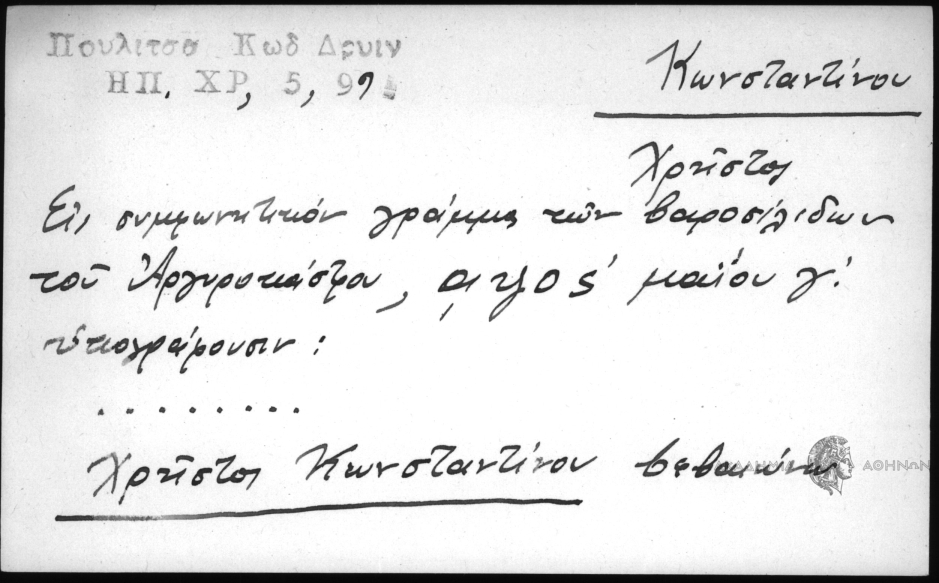 Πουλιτσα Κωδ Δρυιν
ΗΠ. ΧΡ, 5, 97
Κωνσταντίνου
Χρῆστος
Εἰς συμφωνητικόν γράμμα τῶν βαροσιλιδων
τοῦ Ἀργυροκάστρου, αψος΄ μαΐου γ΄.
ὑπογράφουσιν:
.........
Χρῆστος Κωνσταντίνου βεβαιώνω
ΑΘΗΝΩΝ